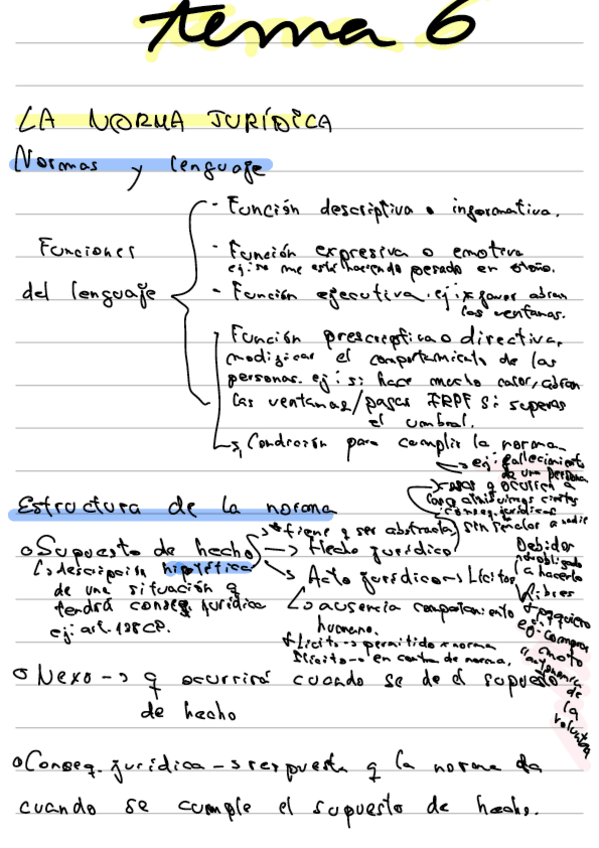 tema 6
LA NORMA JURÍDICA
Normas y lenguaje
Funciones
del lenguaje
- Función descriptiva o informativa.
- Función expresiva o emotiva
ej: se me está haciendo pesado en otoño.
- Función ejecutiva. ej: x favor abran
las ventanas.
Función prescriptiva o directiva,
modificar el comportamiento de las
personas. ej: si hace mucho calor, abran
las ventanas/pagas IRPF si superas
el umbral.
↳ Condición para cumplir la norma
ej: fallecimiento
de una persona
Estructura de la norma
cosas q ocurren a
las q atribuimos ciertas
conseq. jurídicas
* tiene q ser abstracta, sin señalar a nadie
o Supuesto de hecho → Hecho jurídico
↳ descripción hipotética
de una situación q
tendrá conseq. jurídica
ej: art. 138 CP.
→ Acto jurídico → Lícitos
↳ ausencia comportamiento
humano.
Lícito → permitido x norma
Ilícito → en contra de norma.
Debidos
obligado
a hacerlo
Libres
ej: comprar
moto
autonomía
de
la
voluntad
o Nexo → q ocurrirá cuando se de el supuesto
de hecho
o Conseq. jurídica → respuesta q la norma da
cuando se cumple el supuesto de hecho.